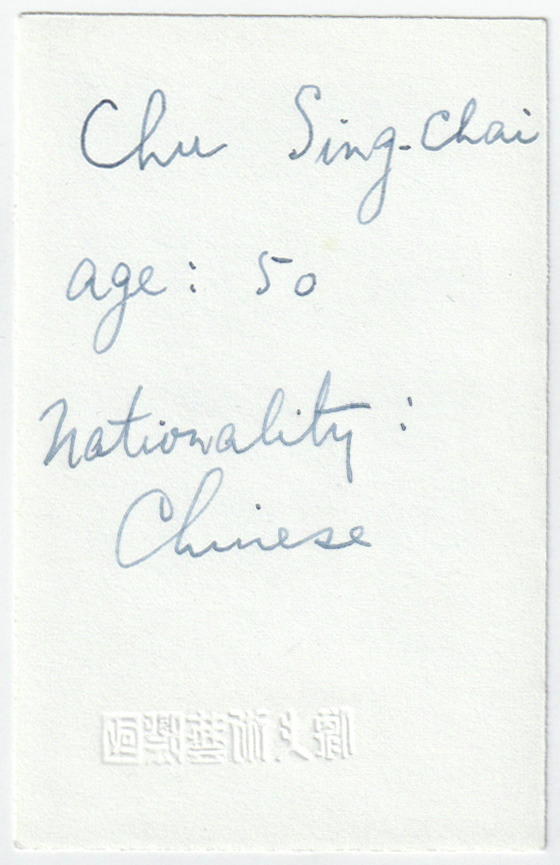 Chu Sing-Chai
age: 50
Nationality:
Chinese
國際藝術人像